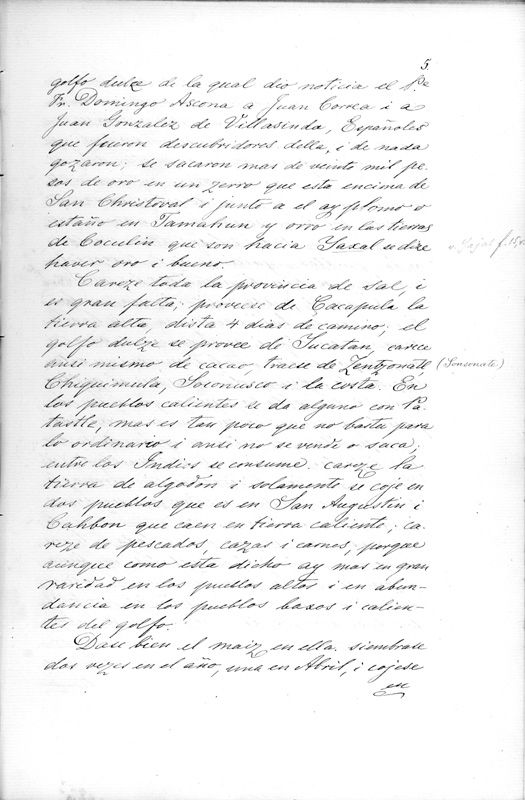 5.
golfo dulze de la qual dio noticia el Pe
Fr. Domingo Ascona a Juan Correa i a
Juan Gonzalez de Villasinda, Españoles
que fueron descubridores della, i de nada
gozaron; se sacaron mas de veinte mil pe-
sos de oro en un zerro que esta encima de
San Christoval i junto a el ay plomo o
estaño en Tamahun y orro en las tierras
de Coculin que son hacia Yaxal se dize
haver oro i bueno.
Careze toda la provincia de sal, i
es gran falta; proveese de Cacapula la
tierra alta, dista 4 dias de camino; el
golfo dulze se provee de Yucatan, careze
ansi mismo de cacao, traese de Zentzonatl (Sonsonate)
Chiquimula, Soconusco i la costa. En
los pueblos calientes se da alguno con Pa-
tastle, mas es tan poco que no basta para
lo ordinario i ansi no se vende o saca;
entre los Indios se consume: careze la
tierra de algodon i solamente se coje en
dos pueblos que es en San Augustin i
Cahbon que caen en tierra caliente; ca-
reze de pescados, cazas i carnes, porque
aunque como esta dicho ay mas en gran
raridad en los pueblos altos i en abun-
dancia en los pueblos baxos i calien-
tes del golfo.
Dase bien el maiz en ella. siembrase
dos vezes en el año, una en Abril, i cojese
en